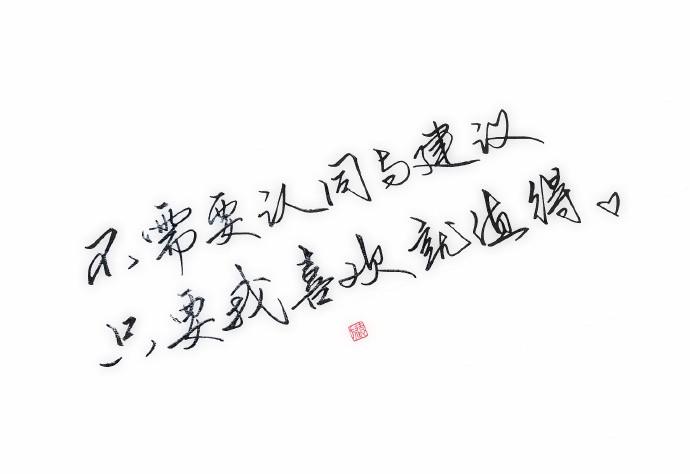 不需要认同与建议
只要我喜欢就值得♡